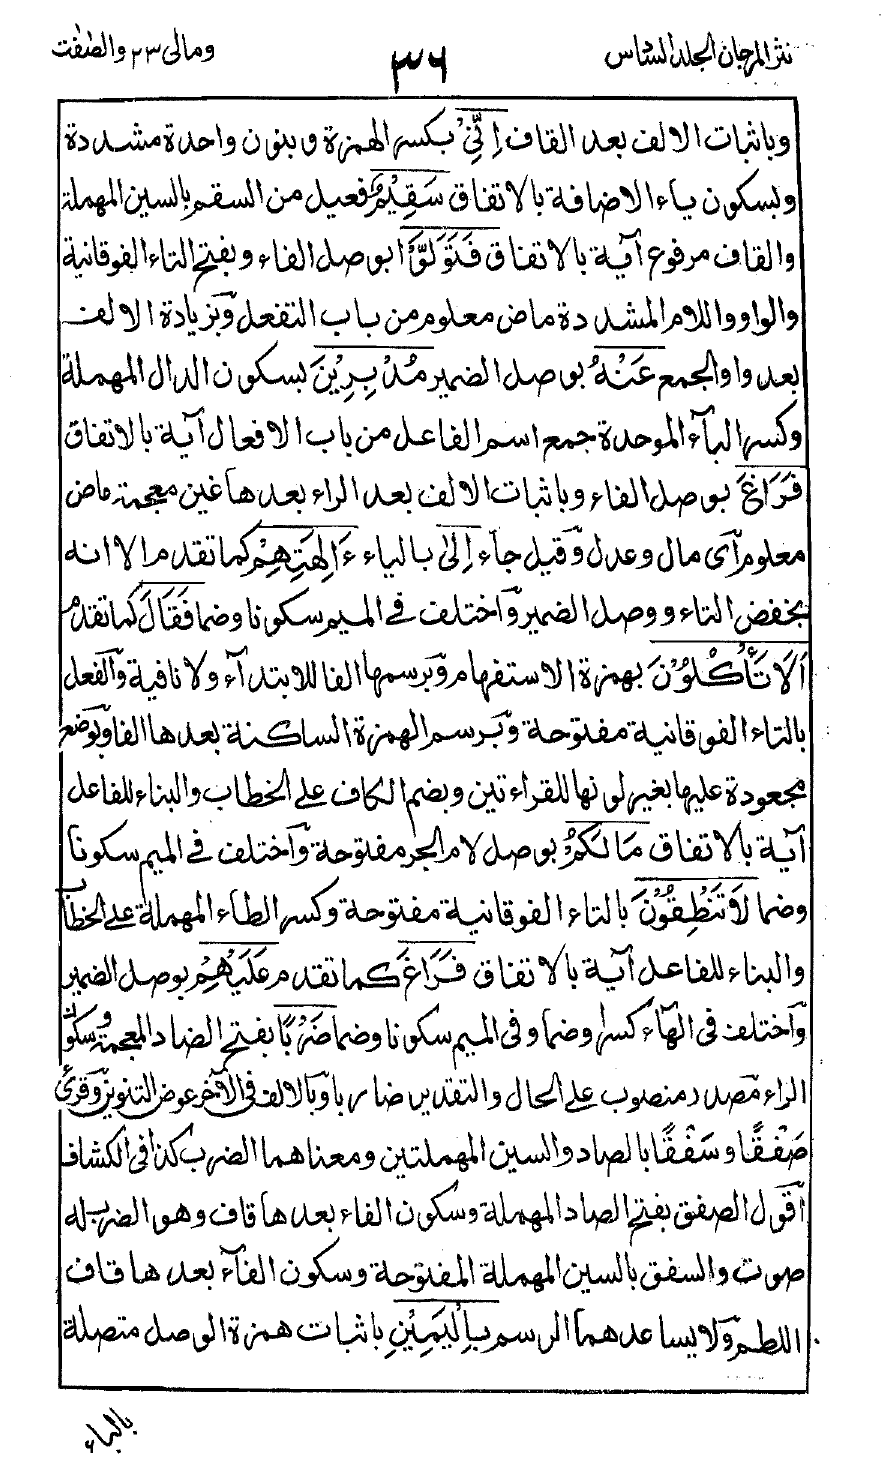 نثر المرجان الجلد السادس
٣٦
ومالى ٢٣ والصٰفٰت
وباثبات الالف بعد القاف اِنِّيْ بكسر الهمزة وبنون واحدة مشددة
وبسكون ياء الاضافة بالاتفاق سَقِيْمٌ فعيل من السقم بالسين المهملة
والقاف مرفوع آية بالاتفاق فَتَوَلَّوْا بوصل الفاء وبفتح التاء الفوقانية
والواو واللام المشددة ماض معلوم من باب التفعل وبزيادة الالف
بعد واو الجمع عَنْهُ بوصل الضمير مُدْبِرِيْنَ بسكون الدال المهملة
وكسر الباء الموحدة جمع اسم الفاعل من باب الافعال آية بالاتفاق
فَرَاغَ بوصل الفاء وباثبات الالف بعد الراء بعدها غين معجمة ماض
معلوم آى مال وعدل وقيل جاء اِلىٰ بالياء ءَالِهَتِهِمْ كما تقدم الا انه
بخفض التاء ووصل الضمير واختلف فى الميم سكونا وضما فَقَالَ كما تقدم
اَلَا تَأْكُلُوْنَ بهمزة الاستفهام وبرسمها الفا للابتداء ولا نافية والفعل
بالتاء الفوقانية مفتوحة وبرسم الهمزة الساكنة بعدها الفا وبوضع
مجعودة عليها بغير لونها للقراءتين وبضم الكاف على الخطاب والبناء للفاعل
آية بالاتفاق مَا لَكُمْ بوصل لام الجر مفتوحة واختلف فى الميم سكونا
وضما لَا تَنْطِقُوْنَ بالتاء الفوقانية مفتوحة وكسر الطاء المهملة على الخطاب
والبناء للفاعل آية بالاتفاق فَرَاغَ كما تقدم عَلَيْهِمْ بوصل الضمير
واختلف فى الهاء كسرا وضما وفى الميم سكونا وضما ضَرْبًا بفتح الضاد المعجمة وسكون
الراء مصدر منصوب على الحال والتقدير ضاربا وبالالف فى الآخر عوض التنوين وقرئ
صَفْقًا وسَفْقًا بالصاد والسين المهملتين ومعناهما الضرب كذا فى الكشاف
اقول الصفق بفتح الصاد المهملة وسكون الفاء بعدها قاف وهو الضرب له
صوت والسفق بالسين المهملة المفتوحة وسكون الفاء بعدها قاف
اللطم ولا يساعدهما الرسم بِالْيَمِيْنِ باثبات همزة الوصل متصلة
بالباء